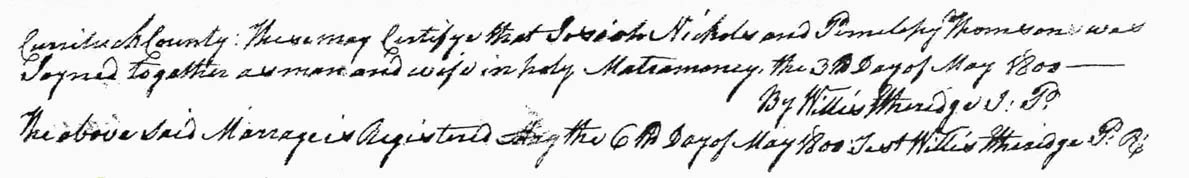 Currituck County: These may Certifye that Josiah Nichols and Penelopy Thomson was
Joyned together as man and wife in holy Matramoney, the 3th Day of May 1800 —
By Willis Etheridge J. P.
The above said Marrage is Registered the 6th Day of May 1800 Test Willis Etheridge P. Rr